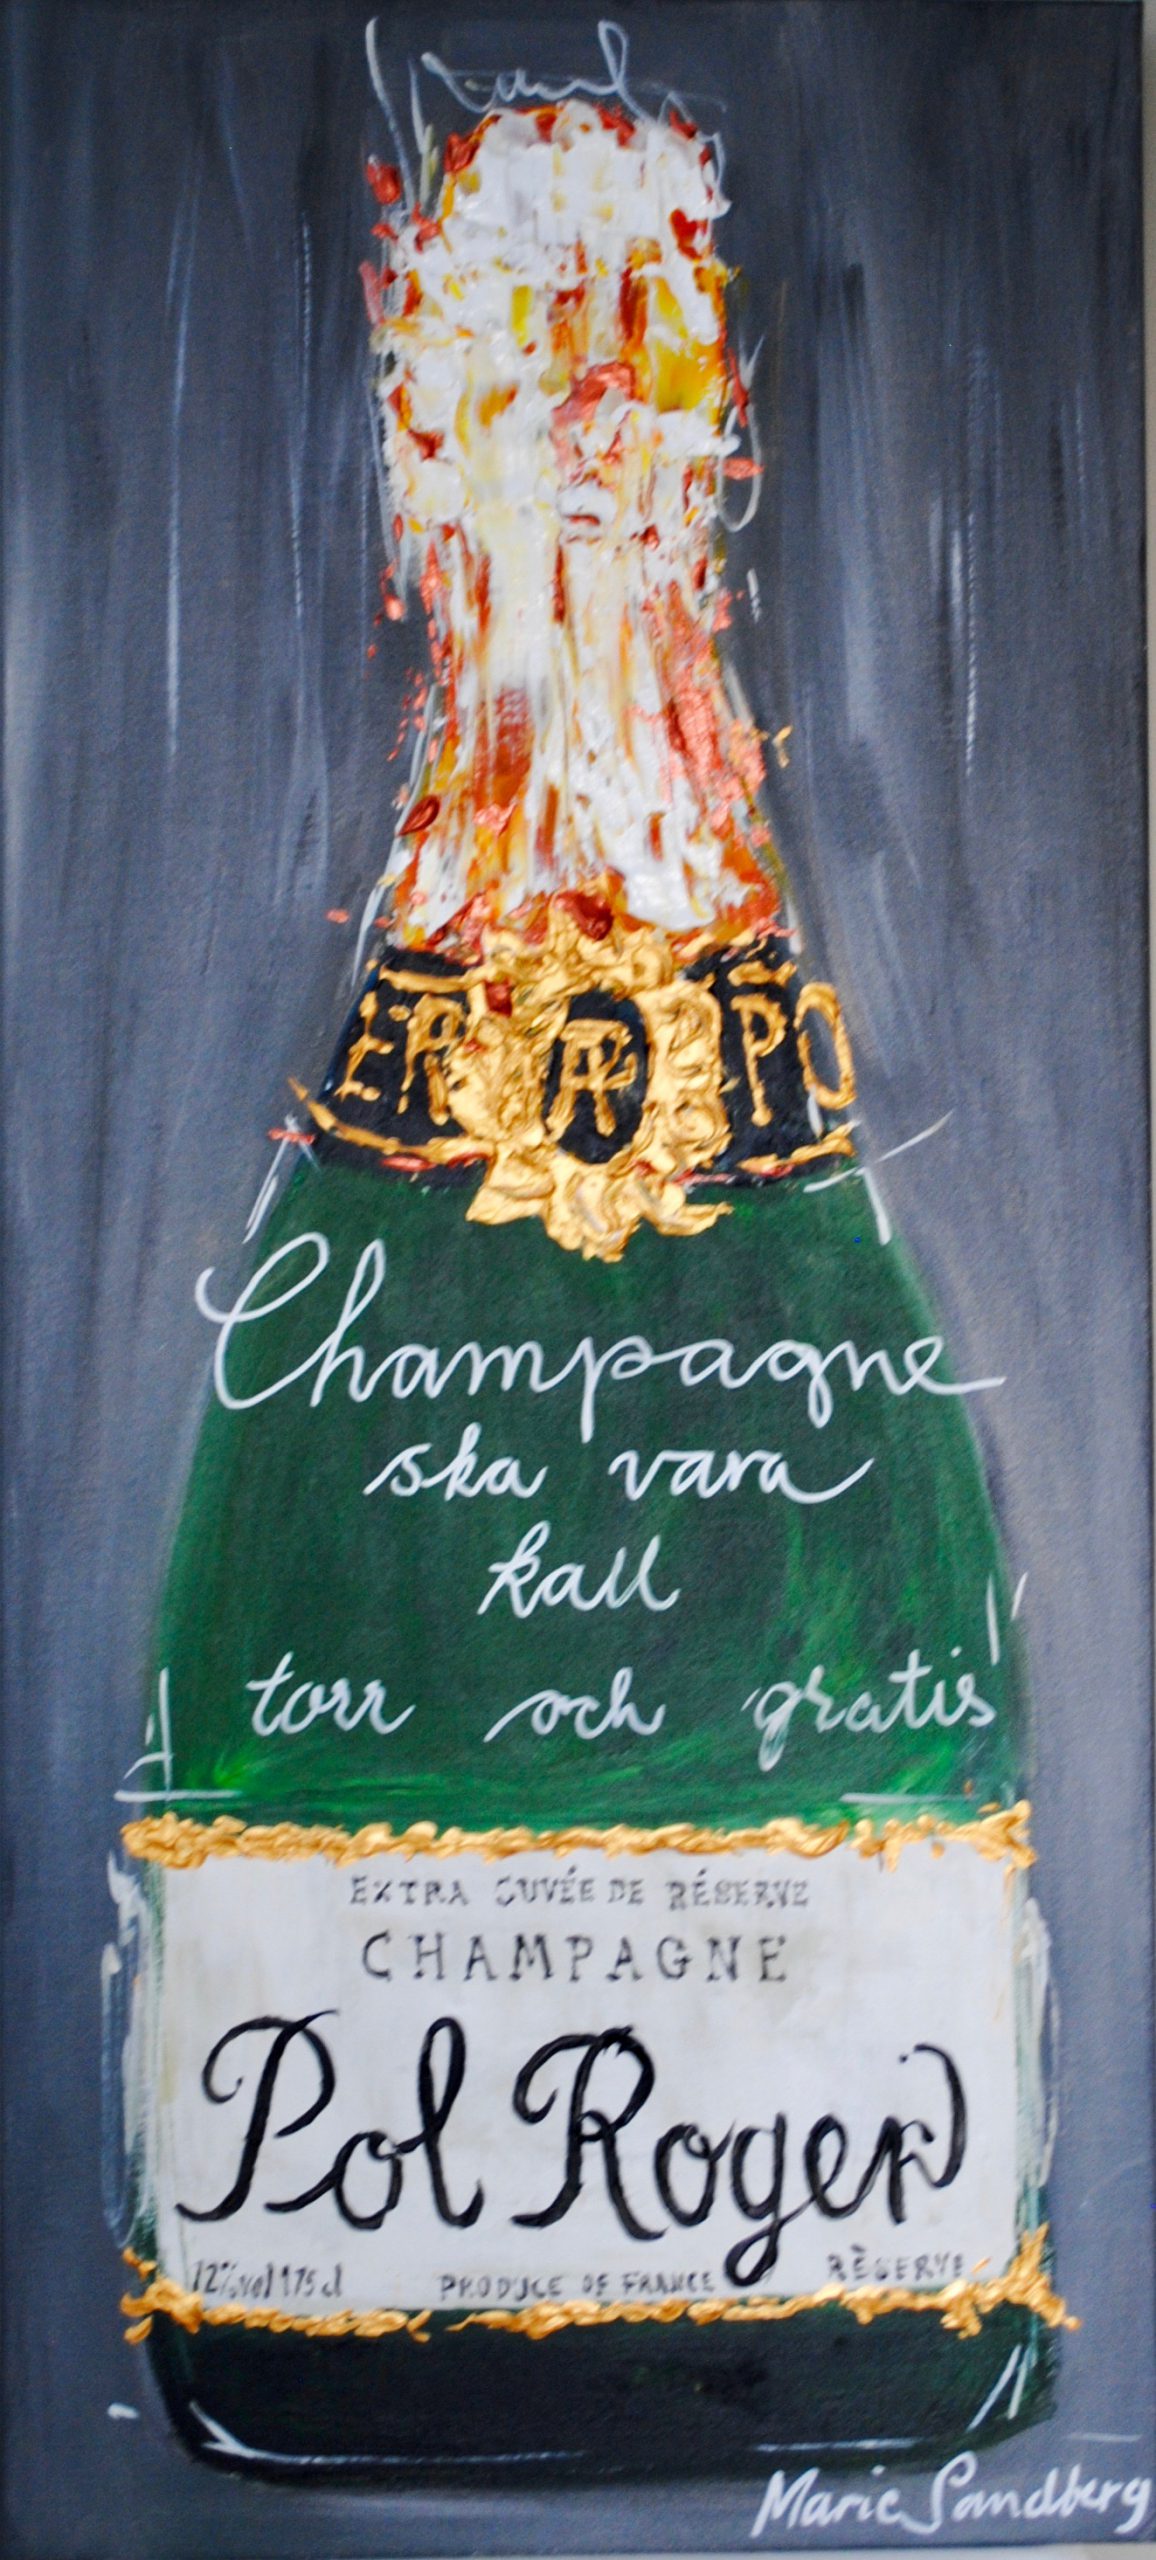 ER PR PO
Champagne
ska vara
kall
torr och gratis
EXTRA CUVÉE DE RÉSERVE
CHAMPAGNE
Pol Roger
12% vol 175 cl
PRODUCE OF FRANCE
RÉSERVE
Marie Sandberg